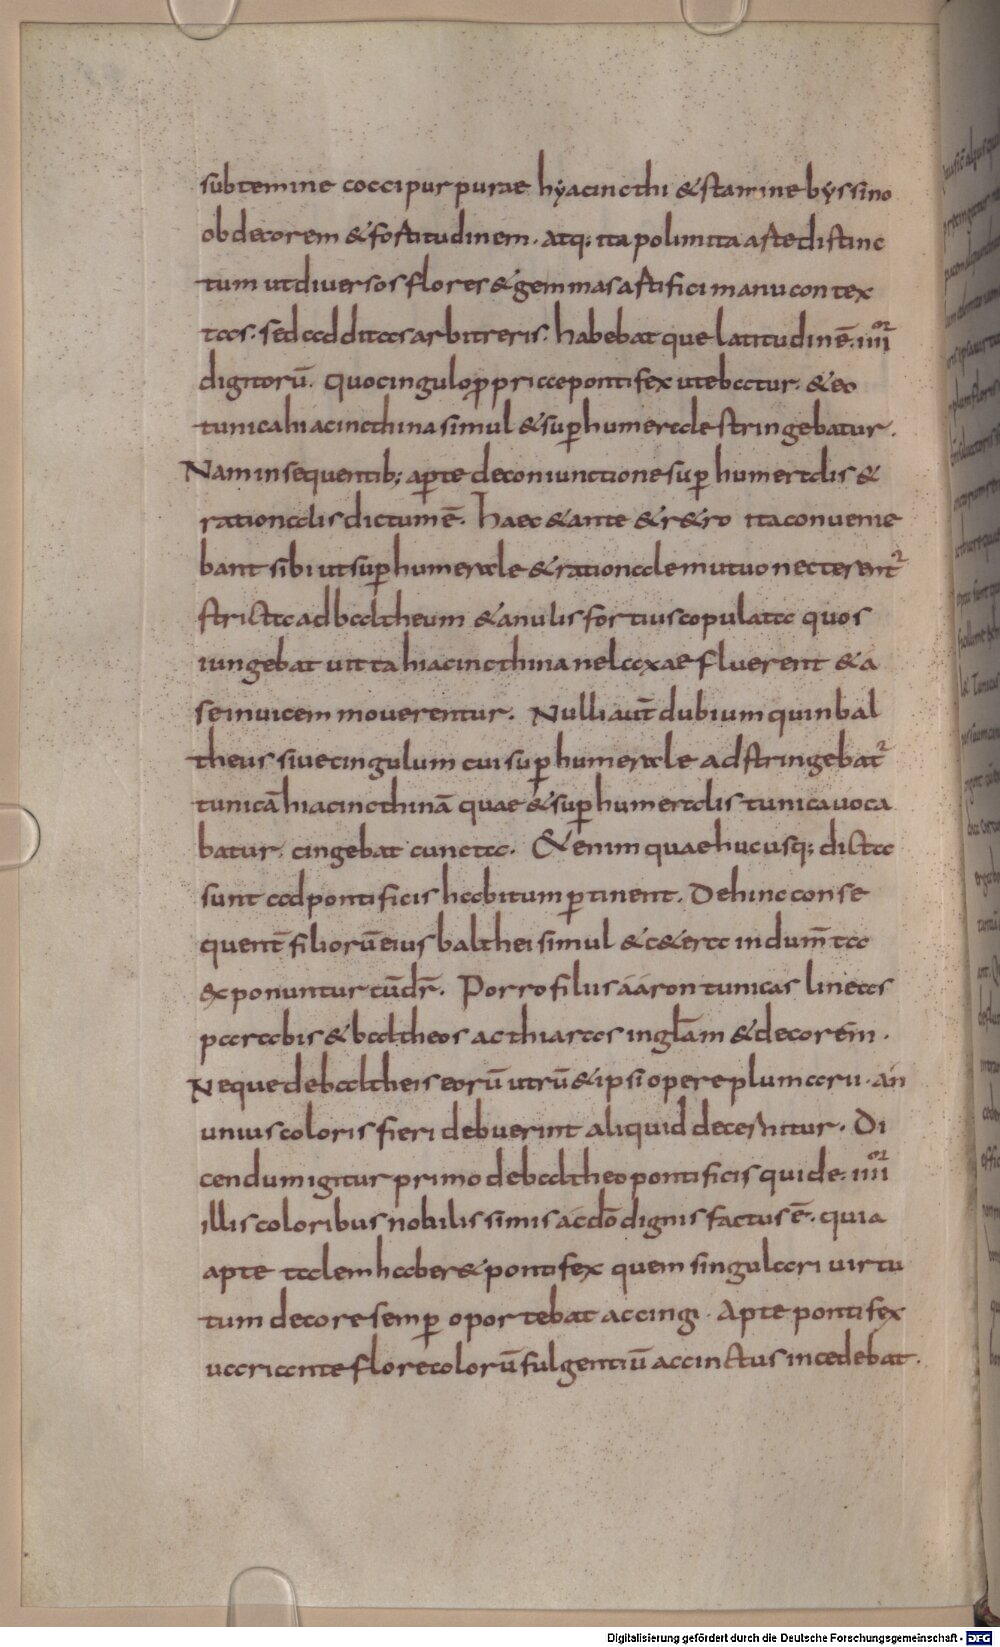 subtemine coccipurpurae hyacincthi & stamine byssino
ob decorem & fortitudinem. atq; ita polimita arte distinc
tum ut diuersos flores & gemmas artifici manu contex
tas. sed addita arbitreris. habebat que latitudinē. iiii or
digitorū. quo cingulo ꝓpriae pontifex utebatur. & eo
tunica hiacincthina simul & suꝑhumerale stringebatur.
Nam in sequentib; aꝑte de coniunctione suꝑhumeralis &
rationalis dictum ē. haec & ante & r&ro ita conuenie
bant sibi ut suꝑhumerale & rationale mutuo necterent̄
stricta ad baltheum & anulis fortius copulata quos
iungebat uitta hiacincthina ne laxae fluerent & a
se inuicem mouerentur. Nulli aut̄ dubium quin bal
theus siue cingulum cui suꝑhumerale adstringebat̄
tunicā hiacincthinā quae & suꝑhumeralis tunica uoca
batur. cingebat cuncta. & enim quae hucusq; dicta
sunt ad pontificis habitum ꝑtinent. Dehinc conse
quent̄ filiorū eius balthei simul & c&era indum̄ta
exponuntur cūdr̄. Porro filiis ááron tunicas lineas
parabis & baltheos ac thiaras in gl̄am & decorem.
Neque de baltheis eorū utrū & ipsi opere plumarii. an
unius coloris fieri debuerint aliquid decernitur. Di
cendum igitur primo de baltheo pontificis qui de. iiii or
illis coloribus nobilissimis ac do dignis factus ē. quia
apte talem haber& pontifex quem singulari uirtu
tum decore semꝑ oportebat accingi. Apte pontifex
uariante flore colorū fulgentiū accinctus incedebat.
Digitalisierung gefördert durch die Deutsche Forschungsgemeinschaft - DFG